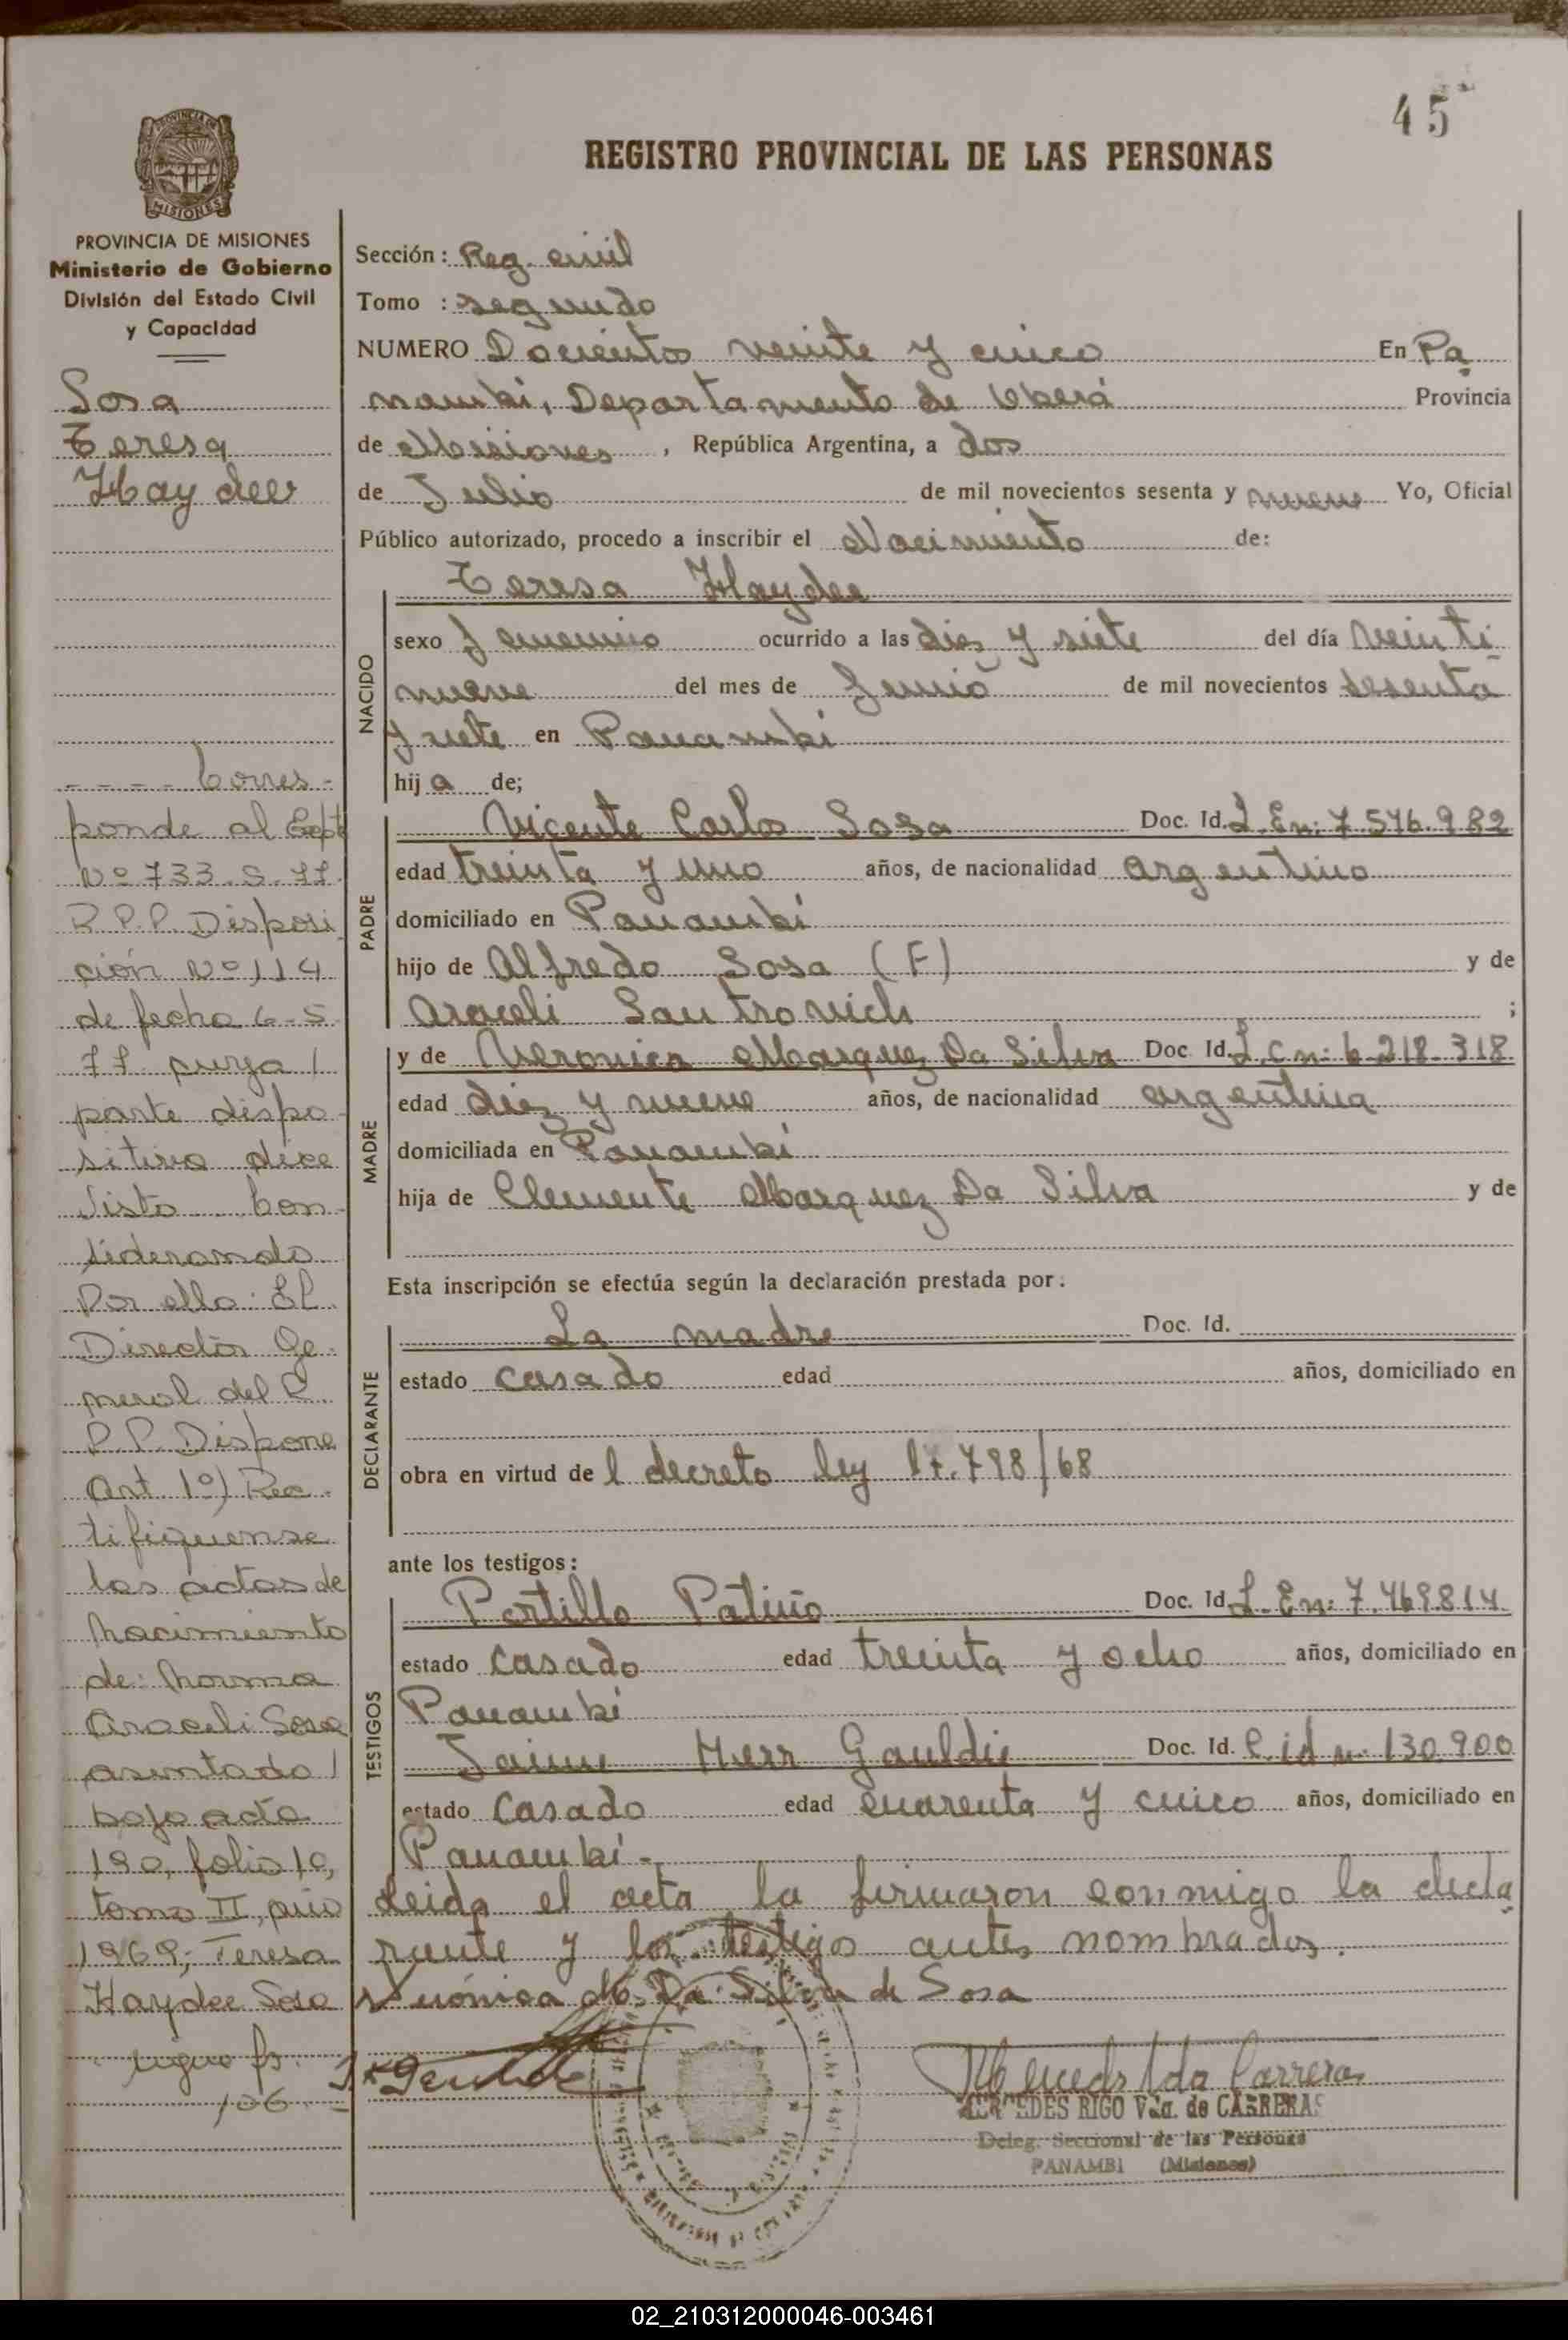 45
REGISTRO PROVINCIAL DE LAS PERSONAS
PROVINCIA DE MISIONES
Ministerio de Gobierno
División del Estado Civil
y Capacidad
Sosa
Teresa
Haydee
- - - - Corres-
ponde al Expte
Nº 733-S-77
R.P.P. Disposi
ción Nº 114
de fecha 6-5
77 cuya /
parte dispo-
sitiva dice
Visto Con-
siderando
Por ello: El
Director Ge-
neral del R.
P.P. Dispone
Art 1º) Rec-
tifiquense
las actas de
Nacimiento
de: Norma
Araceli Sosa
asentado /
bajo acta
190, folio 10,
tomo II, año
1969; Teresa
Haydee Sosa
sigue fs.
106 -
Sección: Reg. civil
Tomo : segundo
NUMERO Docientos veinte y cinco En Pa
nambi, Departamento de Oberá Provincia
de Misiones, República Argentina, a dos
de Julio de mil novecientos sesenta y nueve Yo, Oficial
Público autorizado, procedo a inscribir el Nacimiento de:
Teresa Haydee
NACIDO
sexo femenino ocurrido a las diez y siete del día veinti
nueve del mes de Junio de mil novecientos sesenta
y siete en Panambi
hija de;
PADRE
Vicente Carlos Sosa Doc. Id. L. En: 7 576.982
edad treinta y uno años, de nacionalidad argentino
domiciliado en Panambi
hijo de Alfredo Sosa (F) y de
Araceli Santrovich ;
MADRE
y de Veronica Marquez Da Silva Doc Id. L.C n: 6.218.318
edad diez y nueve años, de nacionalidad argentina
domiciliada en Panambi
hija de Clemente Marquez Da Silva y de
Esta inscripción se efectúa según la declaración prestada por:
DECLARANTE
La madre Doc. Id.
estado casado edad años, domiciliado en
obra en virtud de l decreto ley 17.798/68
ante los testigos:
TESTIGOS
Portillo Patiño Doc. Id. L. En: 7.469.814
estado casado edad treinta y ocho años, domiciliado en
Panambi
Jaime Herr Gauldie Doc. Id. C. id n. 130.900
estado casado edad cuarenta y cinco años, domiciliado en
Panambi -
Leida el acta la firmaron conmigo la decla
rante y los testigos antes nombrados.
Verónica M. Da Silva de Sosa
MERCEDES RIGO Vda. de CARRERAS
Deleg. Seccional de las Personas
PANAMBI (Misiones)
02_210312000046-003461